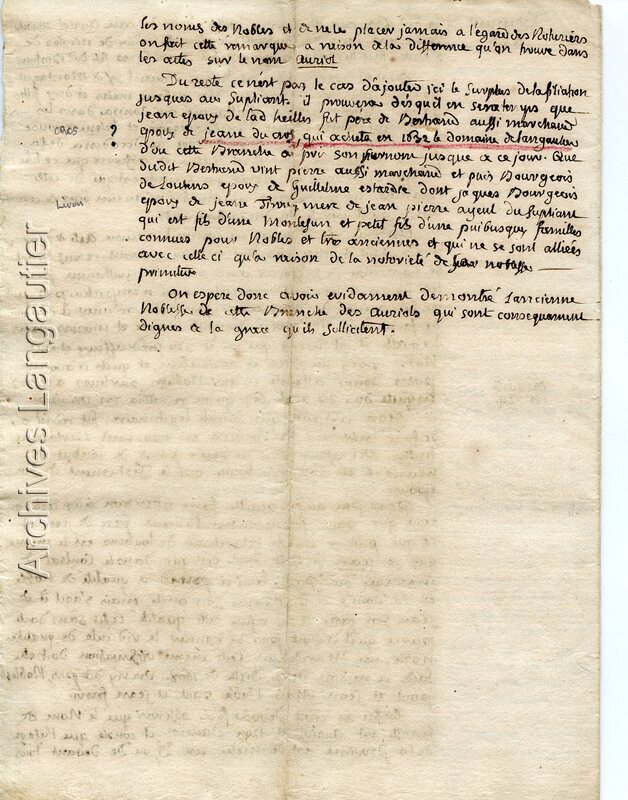 les noms des Nobles et de ne le placer jamais a l'égard des Roturiers
on fait cette remarque a raison de la difference qu'on trouve dans
les actes sur le nom Auriol
Du reste ce n'est pas le cas d'ajouter ici le surplus de la filiation
jusques au supliant. il prouvera dés qu'il en sera requis que
jean epoux de fut pere de Bertrand aussi marchand
cros ? epoux de jeane du cros qui acheta en 1632 le domaine de langautier
d'ou cette Branche a pris son surnom jusque a ce jour. Que
dudit Bertrand vint pierre aussi marchand et puis Bourgeois
de Loutens epoux de Guillelme estardre dont jaques Bourgeois
Livon epoux de jeane mere de jean pierre ayeul du supliant
qui est fils d'une Montesun et petit fils d'une puibusque familles
connues pour Nobles et tres anciennes et qui ne se sont alliées
avec celle ci qu'a raison de la notorieté de sa noblesse
primitive
On espere donc avoir evidament demontré l'ancienne
Noblesse de cette Branche des Auriols qui sont consequament
dignes de la grace qu'ils sollicitent.
Archives Langautier